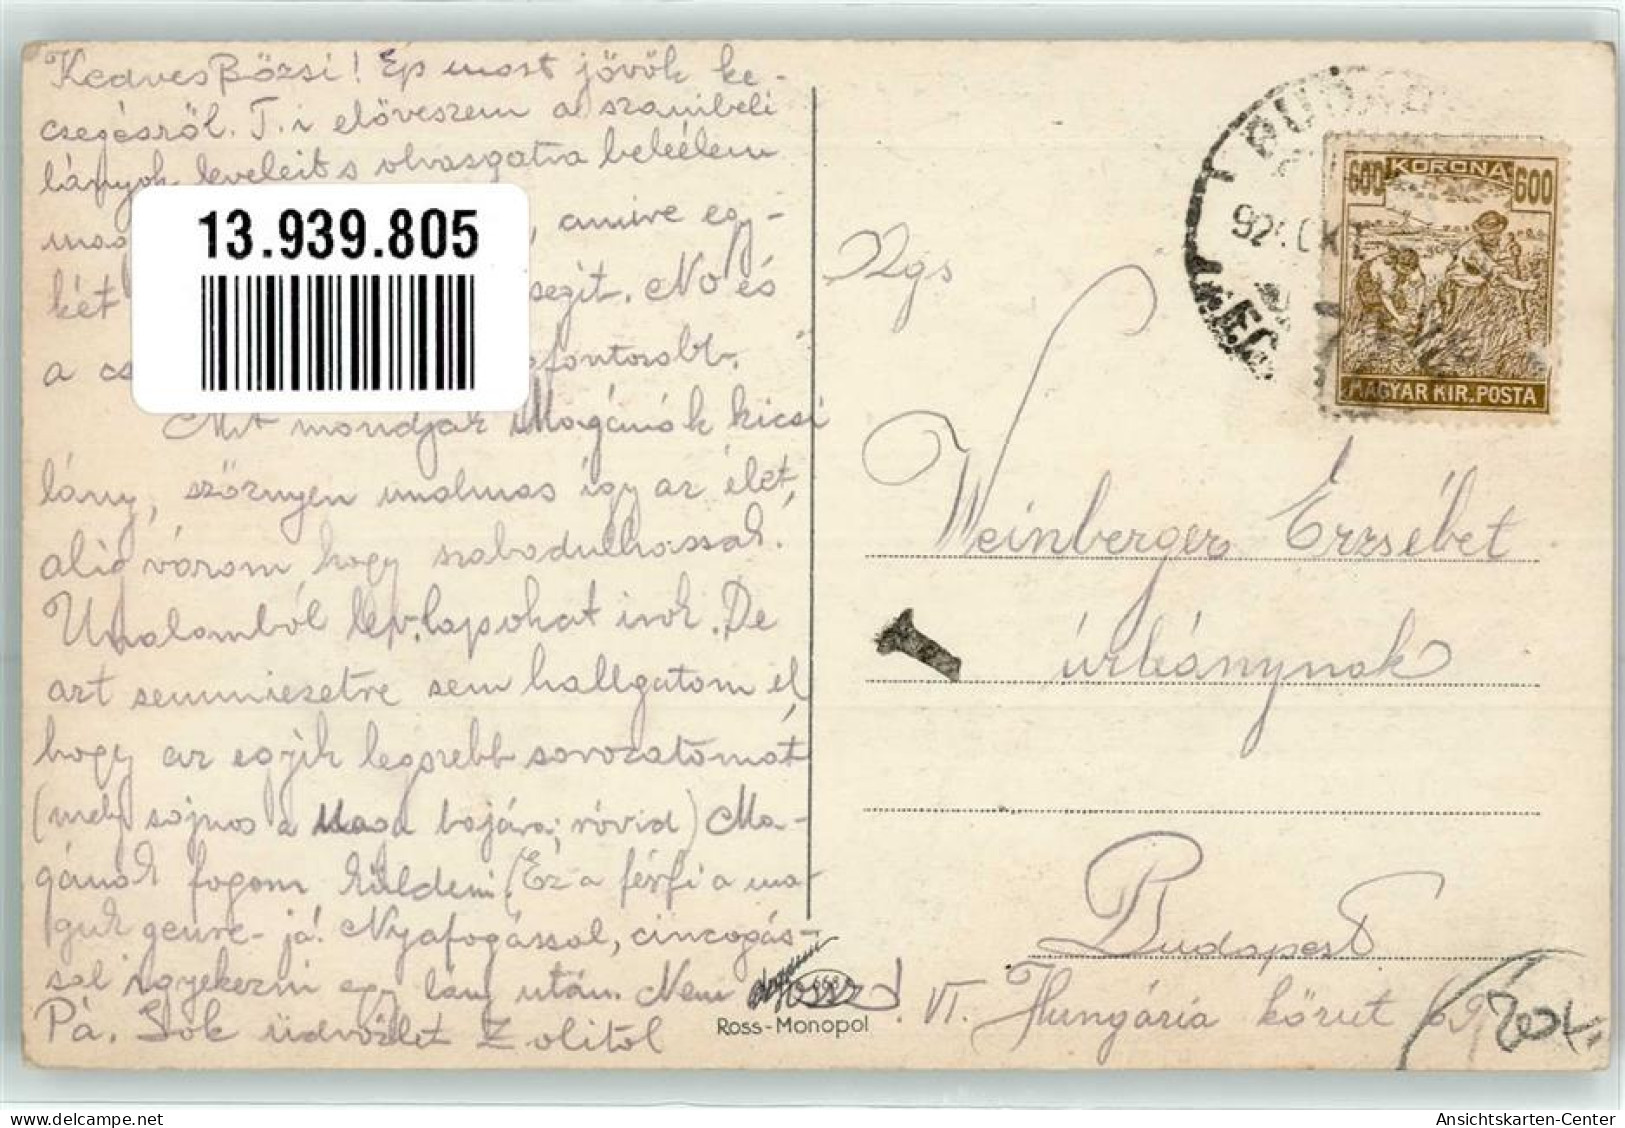 Kedves Bözsi! Ép most jövök ke-
csegésről. T.i előveszem a
lányok leveleit s olvasgatva beleélem
mag
, amire egy-
két segít. No és
a cs
Mit mondjak Magának kicsi
lány, szörnyen unalmas így az élet,
alig várom hogy szabadulhassak.
Unalomból lev.lapokat irok. De
azt semmiesetre sem hallgatom el
hogy az egyik legszebb sorozatomat
(mely sajnos a Maga bajára: rövid) Ma-
gának fogom küldeni. (Ez a férfi a ma-
guk genre-já! Nyafogással, cincogás-
sal igyekezni egy lány után. Nem
Pá. Sok üdvözlet Zolitól
13.939.805
Ross-Monopol
BUDAP
600 KORONA 600
MAGYAR KIR. POSTA
Ngs
Weinberger Erzsébet
úrleánynak
Budapest
VI. Hungária körut 69
Ansichtskarten-Center